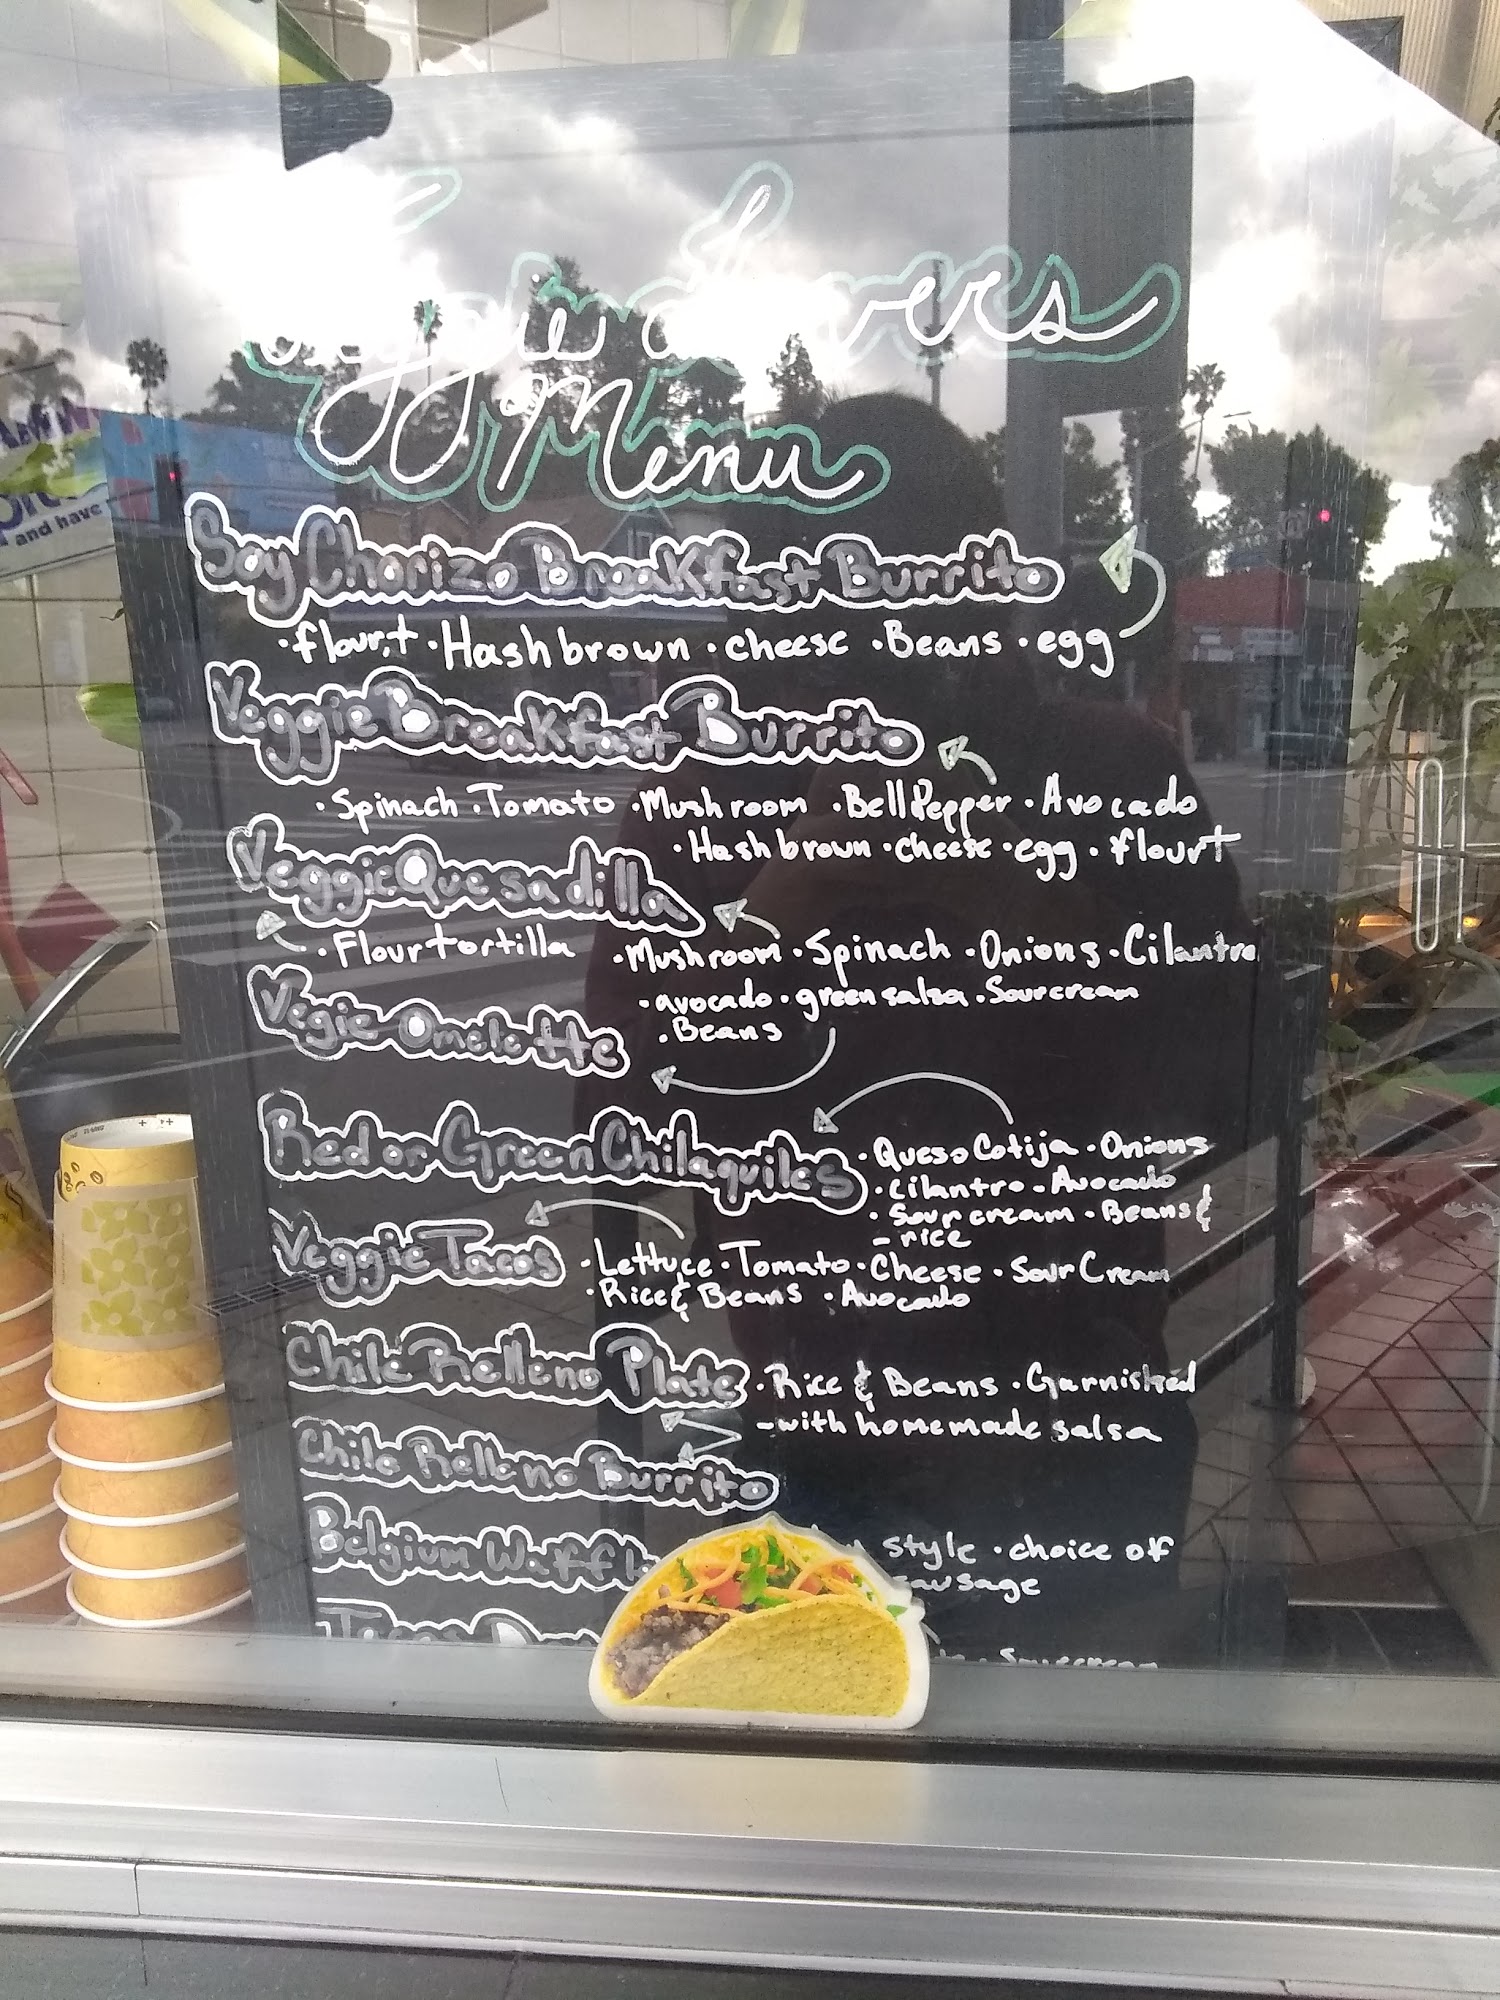 Veggie Lovers
Menu
Soy Chorizo Breakfast Burrito
·flour t ·Hashbrown ·cheese ·Beans ·egg
Veggie Breakfast Burrito
·Spinach ·Tomato ·Mushroom ·Bell Pepper ·Avocado
·Hashbrown ·cheese ·egg ·flour t
Veggie Quesadilla
·Flour tortilla ·Mushroom ·Spinach ·Onions ·Cilantro
·avocado ·green salsa ·Sour cream
·Beans
Vegie Omelette
Red or Green Chilaquiles ·Queso Cotija ·Onions
·cilantro - Avocado
·Sour cream ·Beans &
- rice
Veggie Tacos ·Lettuce ·Tomato ·Cheese ·Sour Cream
·Rice & Beans ·Avocado
Chile Relleno Plate ·Rice & Beans ·Garnished
-with homemade salsa
Chile Relleno Burrito
Belgium style ·choice of
sausage
Tacos
and have